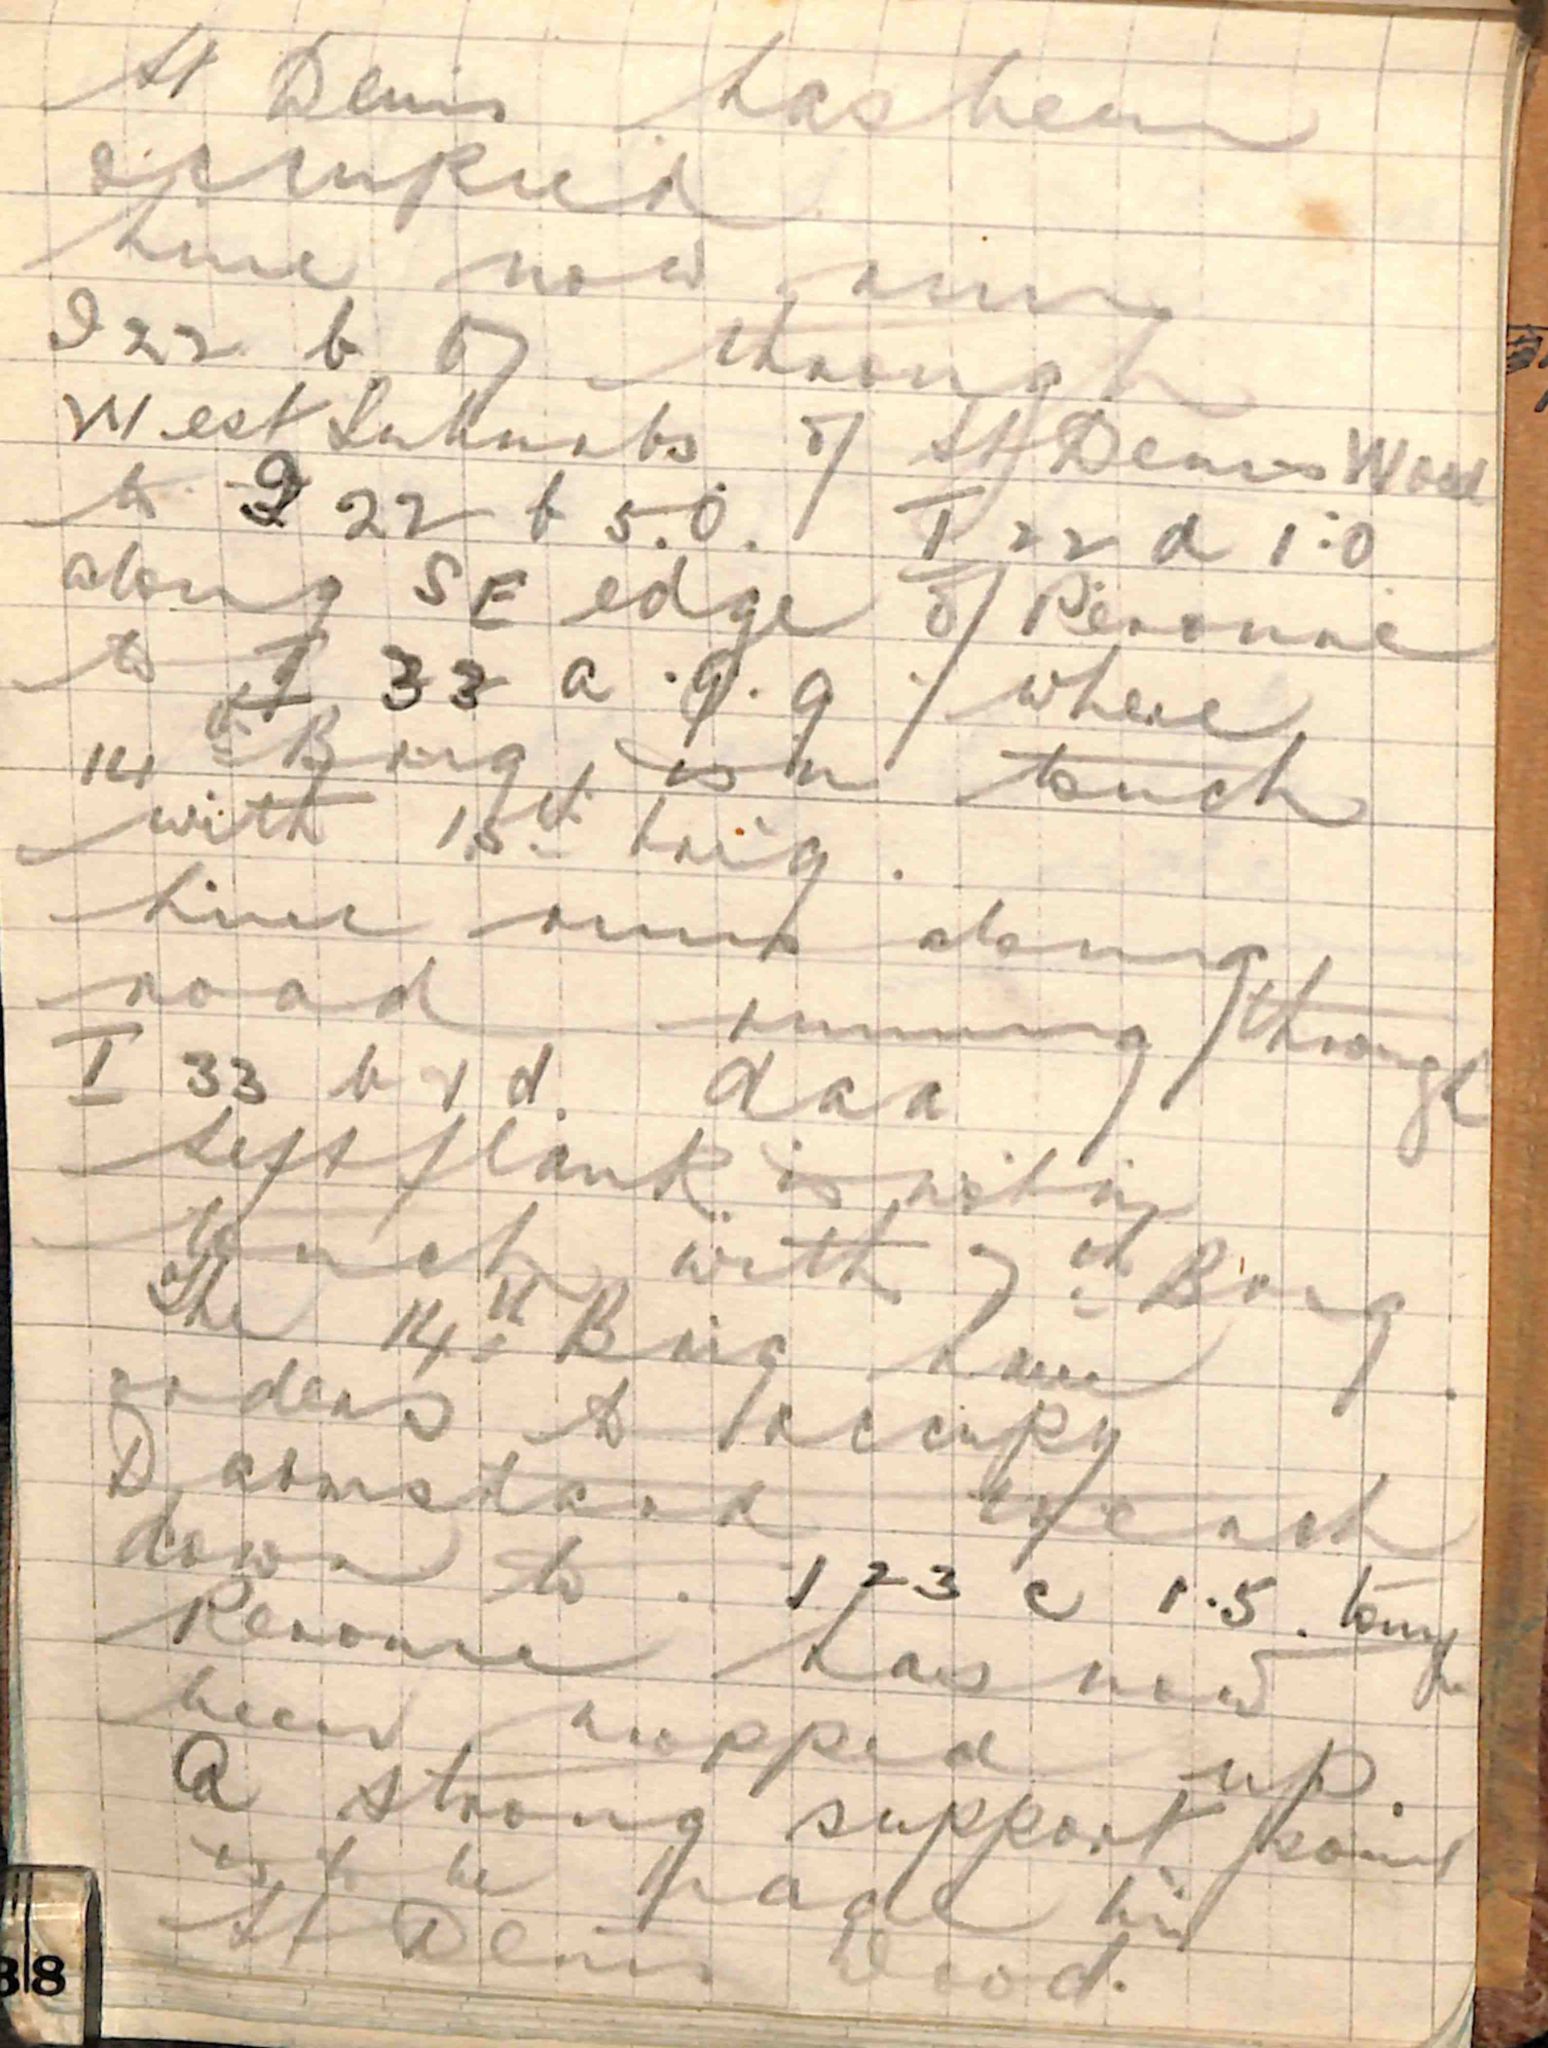 St Denis has been
occupied
Line now runs
I 22 b 57 through
West Suburbs of St Denis Wood
to I 22 b 5.0. I 22 d 1.0
along SE edge of Peronne
to I 33 a .9.9. where
14th Brig is in touch
with 15th brig.
Line runs along
road running through
I 33 b & d. aaa
Left flank is not in
touch with 7th Brig.
The 14th Brig have
orders to occupy
Darmstard trench
down to . I 23 c 1.5.
Peronne has now
been mopped up.
A strong support point
is to be made in
St Denis Wood.